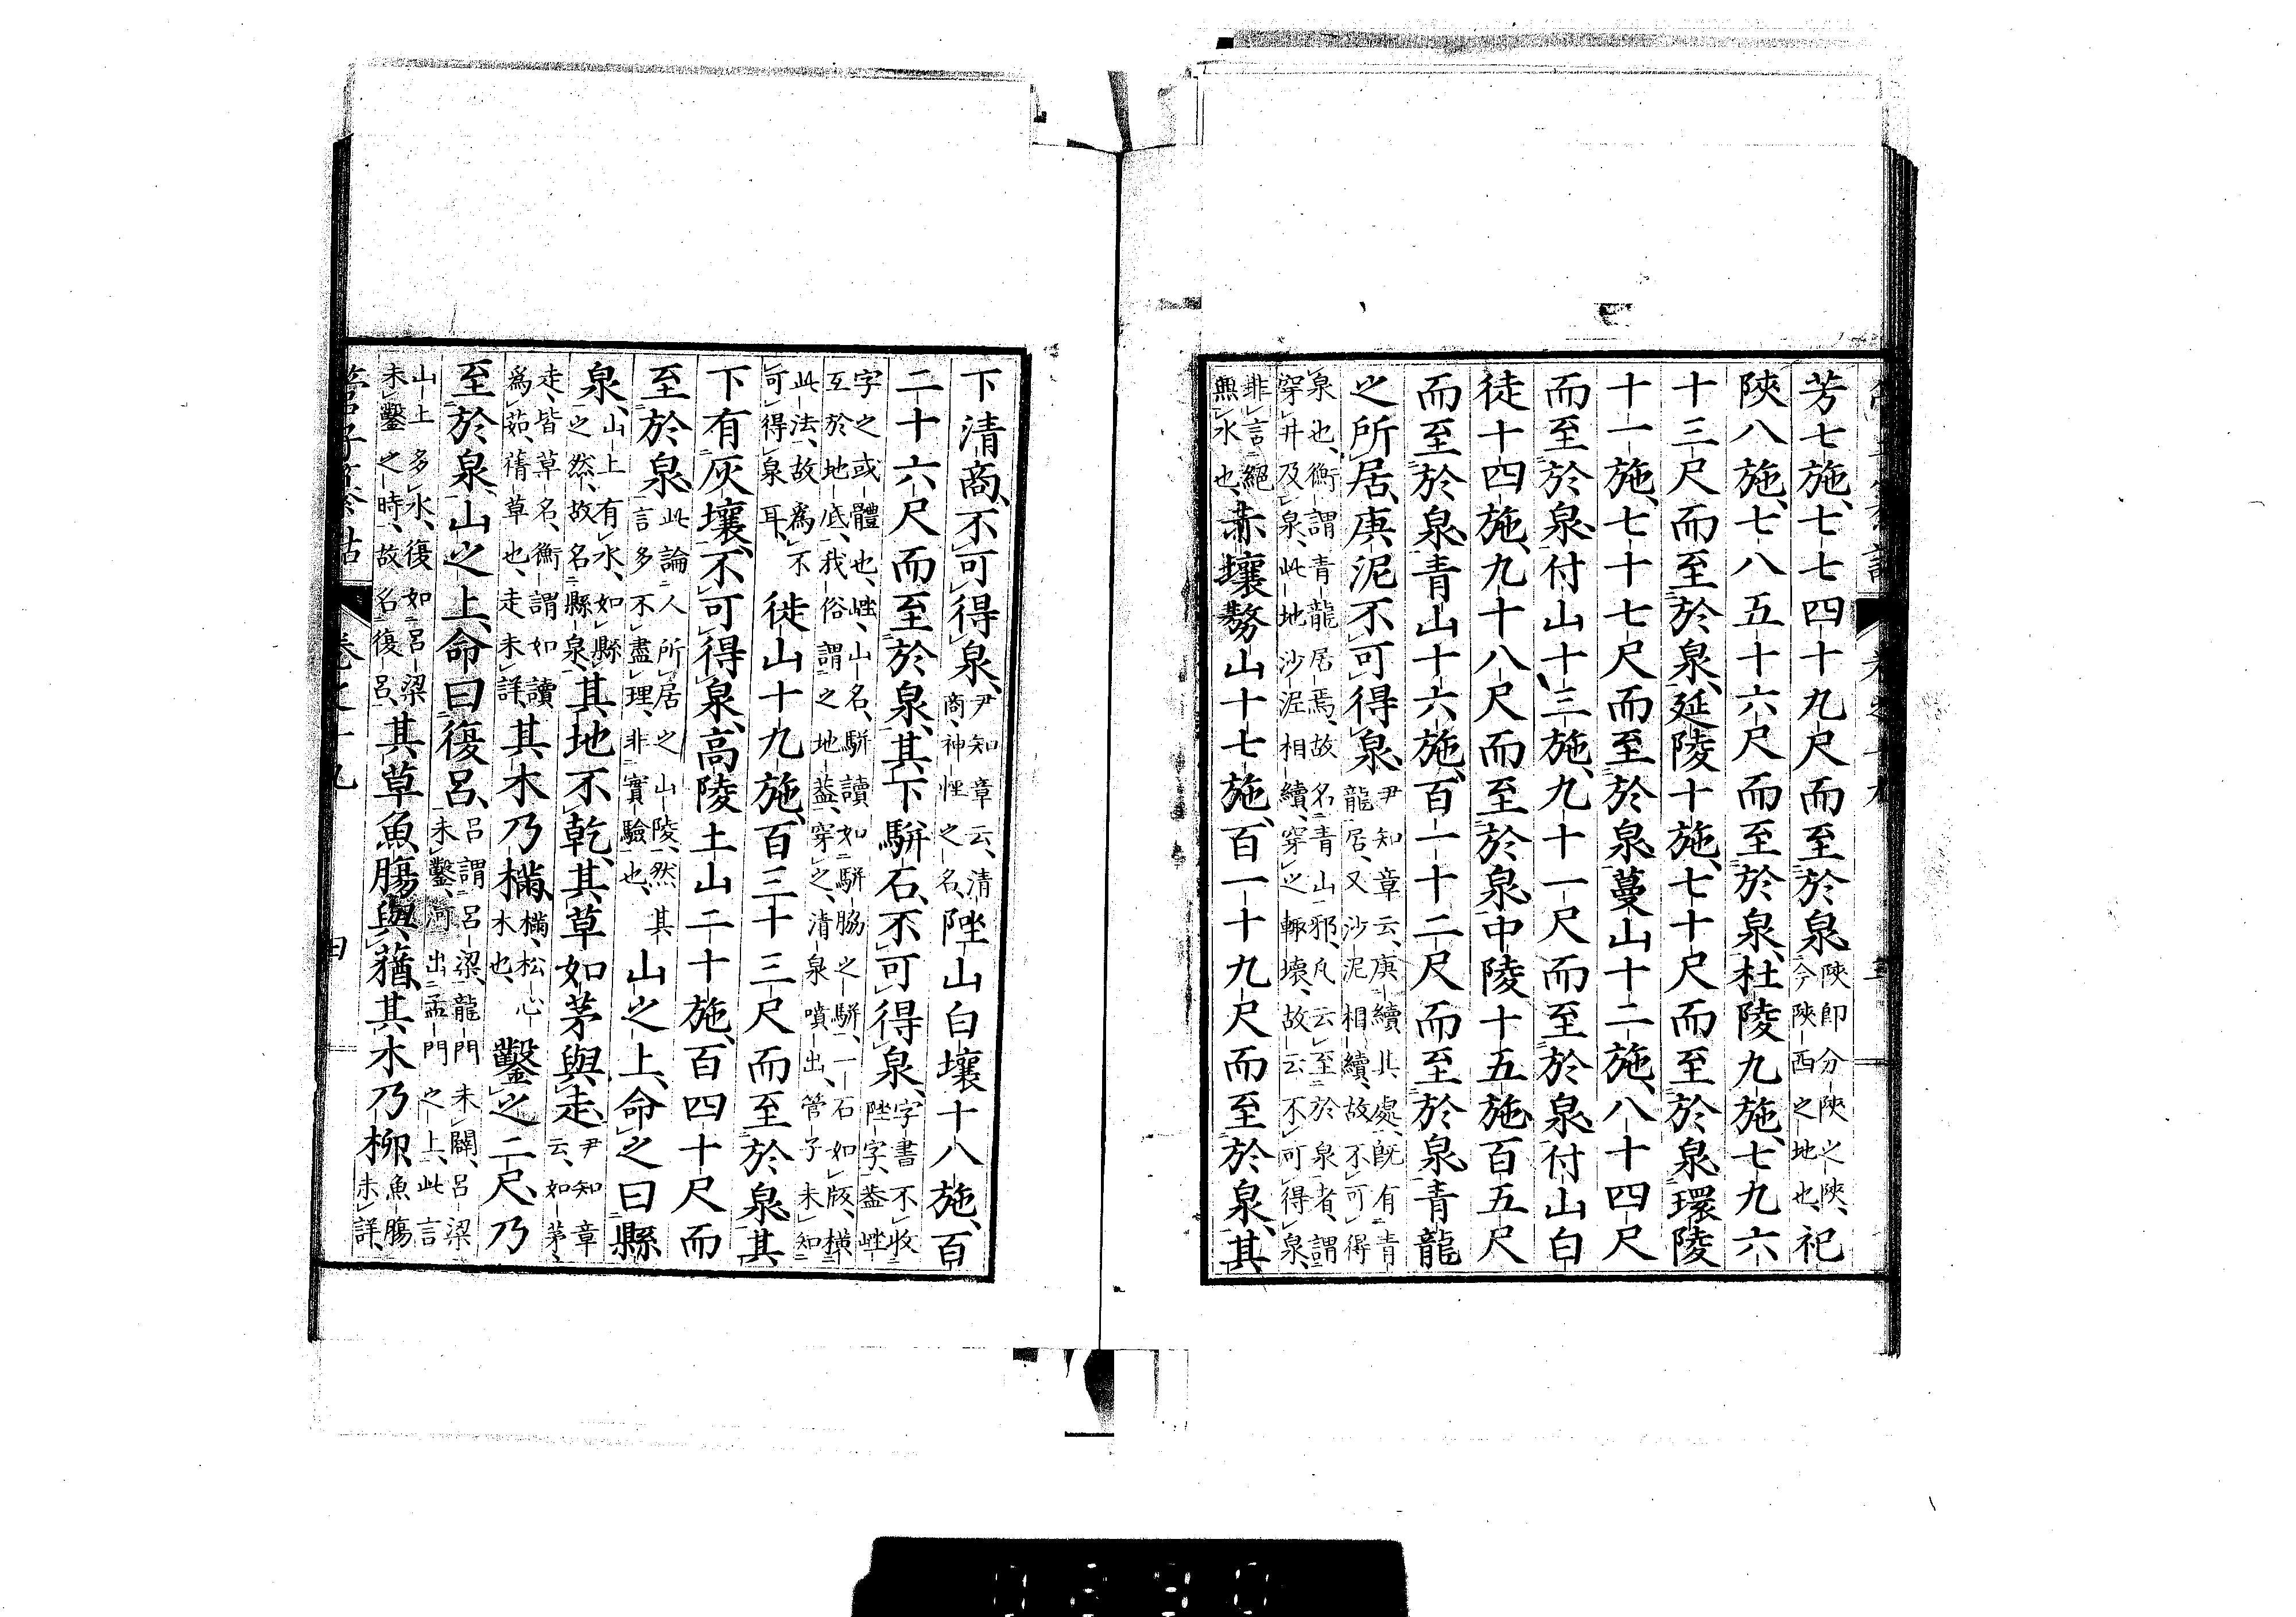 芳七施、七七四十九尺而至於泉、陝即分陝之陝、今陝西之地也、祀
陝八施、七八五十六尺而至於泉、杜陵九施、七九六
十三尺而至於泉、延陵十施、七十尺而至於泉、環陵
十一施、七十七尺而至於泉、蔓山十二施、八十四尺
而至於泉、付山十三施、九十一尺而至於泉、付山白
徒十四施、九十八尺而至於泉、中陵十五施、百五尺
而至於泉、青山十六施、百一十二尺而至於泉、青龍
之所居、庚泥不可得泉、尹知章云、庚續、其處既有青龍居、又沙泥相續、故不可得
泉也、衡謂青龍居焉、故名青山邪、凡云至於泉者、謂穿井及泉、此地沙泥相續、穿之輙壞、故云不可得泉、
非言絕無水也、赤壤㔡山十七施、百一十九尺而至於泉、其
下清商、不可得泉、尹知章云、清商、神怪之名、陛山白壤十八施、百
二十六尺而至於泉、其下駢石、不可得泉、字書不收陛字、蓋㟐
字之或體也、㟐山名、駢讀如駢脇之駢、一石如版、橫互於地底、我俗謂之地蓋、穿之、清泉噴出、管子未知
此法、故爲不可得泉耳、徙山十九施、百三十三尺而至於泉、其
下有灰壤、不可得泉、高陵土山二十施、百四十尺而
至於泉、此論人所居之山陵、然其言多不盡理、非實驗也、山之上、命之曰縣
泉、山上有水、如縣之然、故名縣泉、其地不乾、其草如茅與走、尹知章云、如茅、
走、皆草名、衡謂如讀爲茹、蒨草也、走未詳、其木乃樠、樠、松心木也、鑿之二尺、乃
至於泉、山之上、命曰復呂、呂謂呂梁、龍門未闢、呂梁未鑿、河出孟門之上、此言
山上多水、復如呂梁未鑿之時、故名復呂、其草魚腸與蕕、其木乃柳、魚腸未詳、
管子纂詁 卷之十九